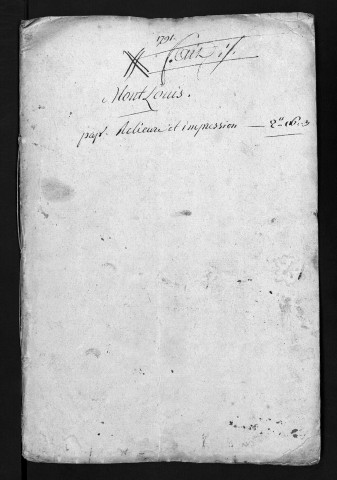 1791.
Mont Louis.
pap.^r Relieure et impression — 2^tt 16.^s